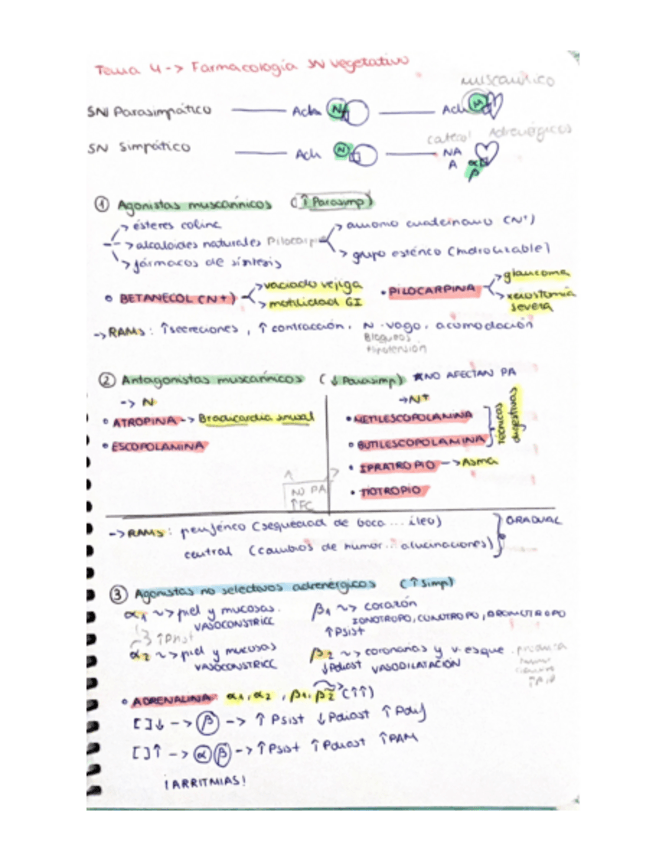 Tema 4 -> Farmacología SN vegetativo
muscarínico
SN Parasimpático — Ach N — Ach M
catecol Adrenérgicos
SN Simpático — Ach N — NA
A α β
① Agonistas muscarínicos (↑ Parasimp)
-> ésteres colina
-> alcaloides naturales Pilocarpi
-> fármacos de síntesis
-> amonio cuaternario (N+)
-> grupo estérico (hidrolizable)
• BETANECOL (N+) -> vaciado vejiga
-> motilidad GI
• PILOCARPINA -> glaucoma
-> xerostomía severa
-> RAMs: ↑secreciones, ↑ contracción, N. vago, acomodación
Bloqueos
Hipotensión
② Antagonistas muscarínicos (↓ Parasimp) *NO AFECTAN PA
-> N
• ATROPINA -> Bradicardia sinusal
• ESCOPOLAMINA
NO PA
↑FC
-> N+
• METILESCOPOLAMINA
• BUTILESCOPOLAMINA
técnicas digestivas
• IPRATROPIO -> Asma
• TIOTROPIO
-> RAMs: periférico (sequedad de boca ... íleo)
central (cambios de humor... alucinaciones)
GRADUAL
③ Agonistas no selectivos adrenérgicos (↑ Simp)
α1 ~> piel y mucosas.
VASOCONSTRICC
↑Psist
α2 ~> piel y mucosas
VASOCONSTRICC
β1 ~> corazón
IONOTROPO, CONOTROPO, DROMOTROPO
↑Psist
β2 ~> coronarias y v. esque. produce
↓Pdiast VASODILATACIÓN
• ADRENALINA: α1, α2, β1, β2 (↑↑)
[ ]↓ -> β -> ↑ Psist ↓ Pdiast ↑ Pdif
[ ]↑ -> α β -> ↑ Psist ↑ Pdiast ↑ PAM
¡ARRITMIAS!